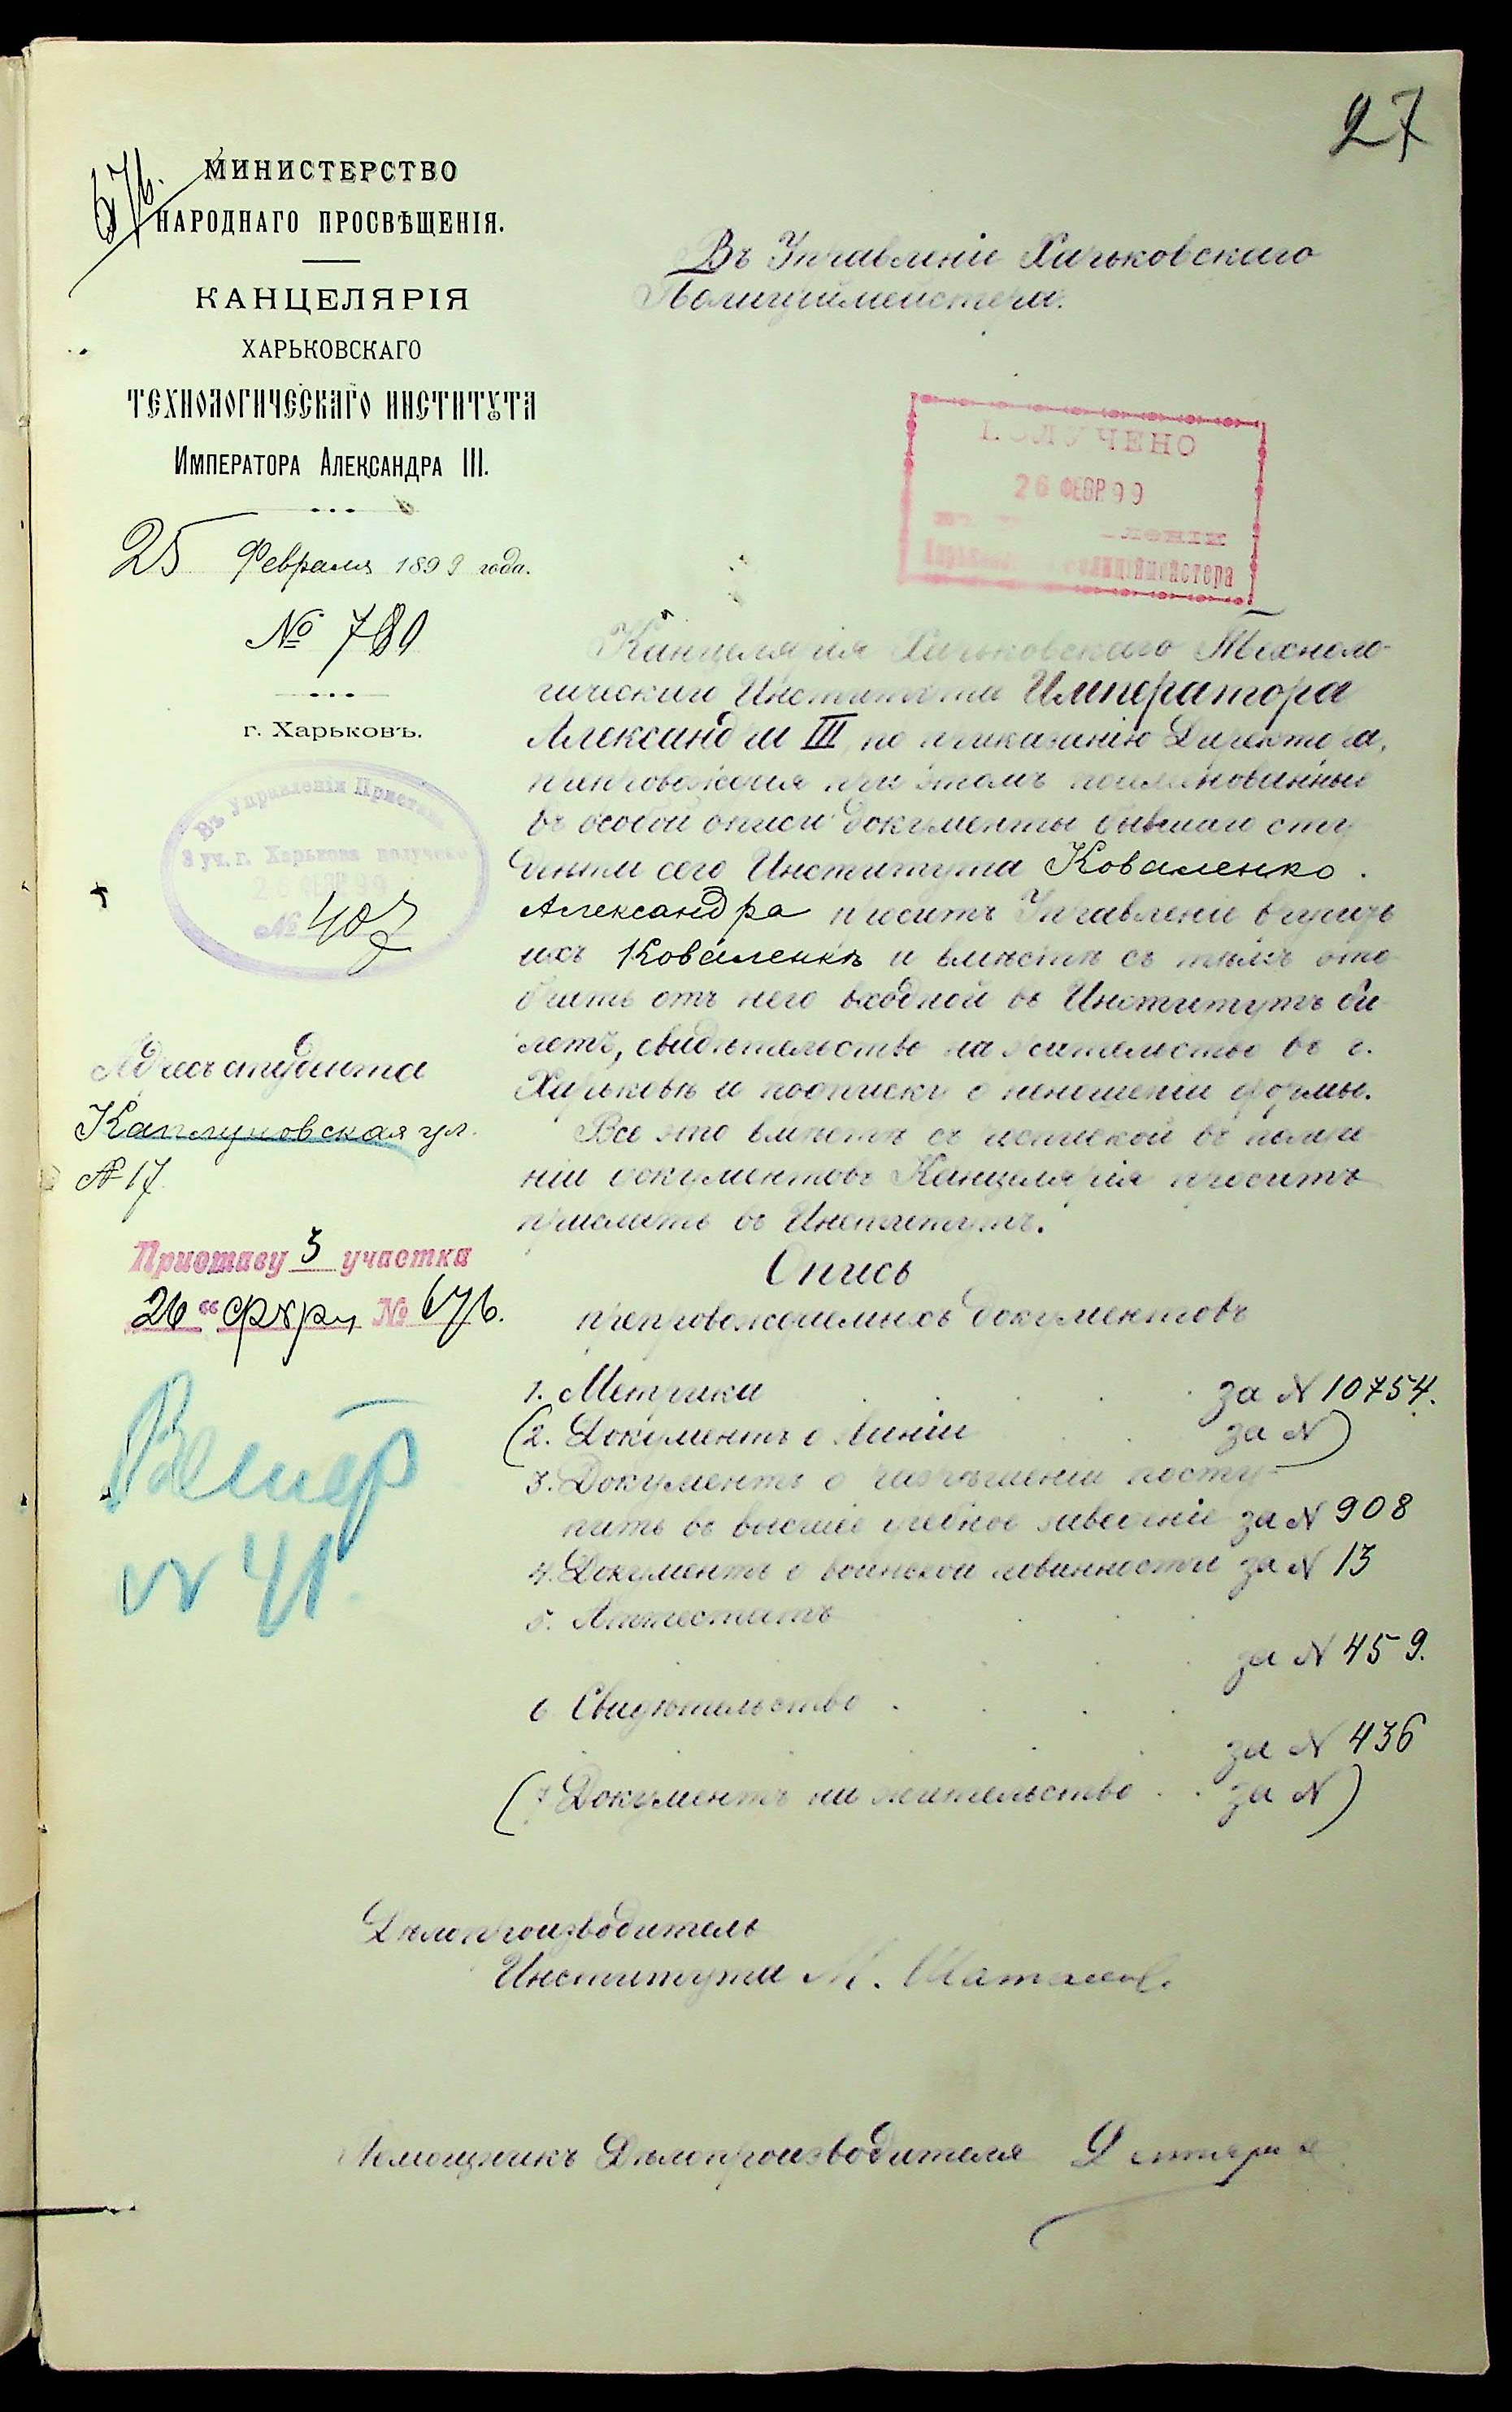 27
676.
МИНИСТЕРСТВО
НАРОДНАГО ПРОСВѢЩЕНІЯ.
КАНЦЕЛЯРІЯ
ХАРЬКОВСКАГО
ТЕХНОЛОГИЧЕСКАГО ИНСТИТУТА
ИМПЕРАТОРА АЛЕКСАНДРА III.
25 Февраля 1899 года.
№ 780
г. Харьковъ.
Въ Управленіи Пристава
3 уч. г. Харькова получено
№ 407
Адресъ студента
Каплуновская ул.
№ 17
Приставу 3 участка
26 " февр № 676.
№ 41.
Въ Управленіе Харьковскаго
Полиціймейстера.
ПОЛУЧЕНО
26 ФЕВР 99
Полиціймейстера
Канцелярія Харьковскаго Техноло-
гическаго Института Императора
Александра III, по приказанію Директора,
препровождая при этомъ поименованные
въ особой описи документы бывшаго сту-
дента сего Института Коваленко
Александра проситъ Управленіе вручить
ихъ Коваленкѣ и вмѣстѣ съ тѣмъ ото-
брать отъ него входной въ Институтъ би-
летъ, свидѣтельство на жительство въ г.
Харьковѣ и подписку о неношеніи формы.
Все это вмѣстѣ съ роспиской въ получе-
ніи документовъ Канцелярія проситъ
прислать въ Институтъ.
Опись
препровождаемыхъ документовъ
1. Метрика . . . . за № 10754.
(2. Документъ о званіи . . за №)
3. Документъ о разрѣшеніи посту-
пить въ высшее учебное заведеніе за № 908
4. Документъ о воинской повинности за № 13
5. Аттестатъ . . .
за № 459.
6 Свидѣтельство . . . .
за № 436
(7 Документъ на жительство . . за №)
Дѣлопроизводитель
Института М.
Помощникъ Дѣлопроизводителя